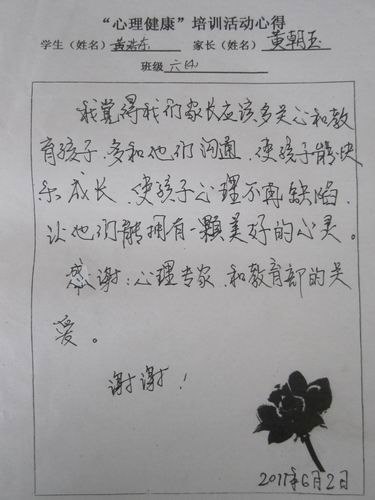 “心理健康”培训活动心得
学生（姓名）黄浩东 家长（姓名）黄朝玉
班级 六（4）
我觉得我们家长应该多关心和教
育孩子，多和他们沟通，使孩子能快
乐成长，使孩子心理不再缺陷，
让他们能拥有一颗美好的心灵。
感谢：心理专家，和教育部的关
爱。
谢谢！
2011年6月2日